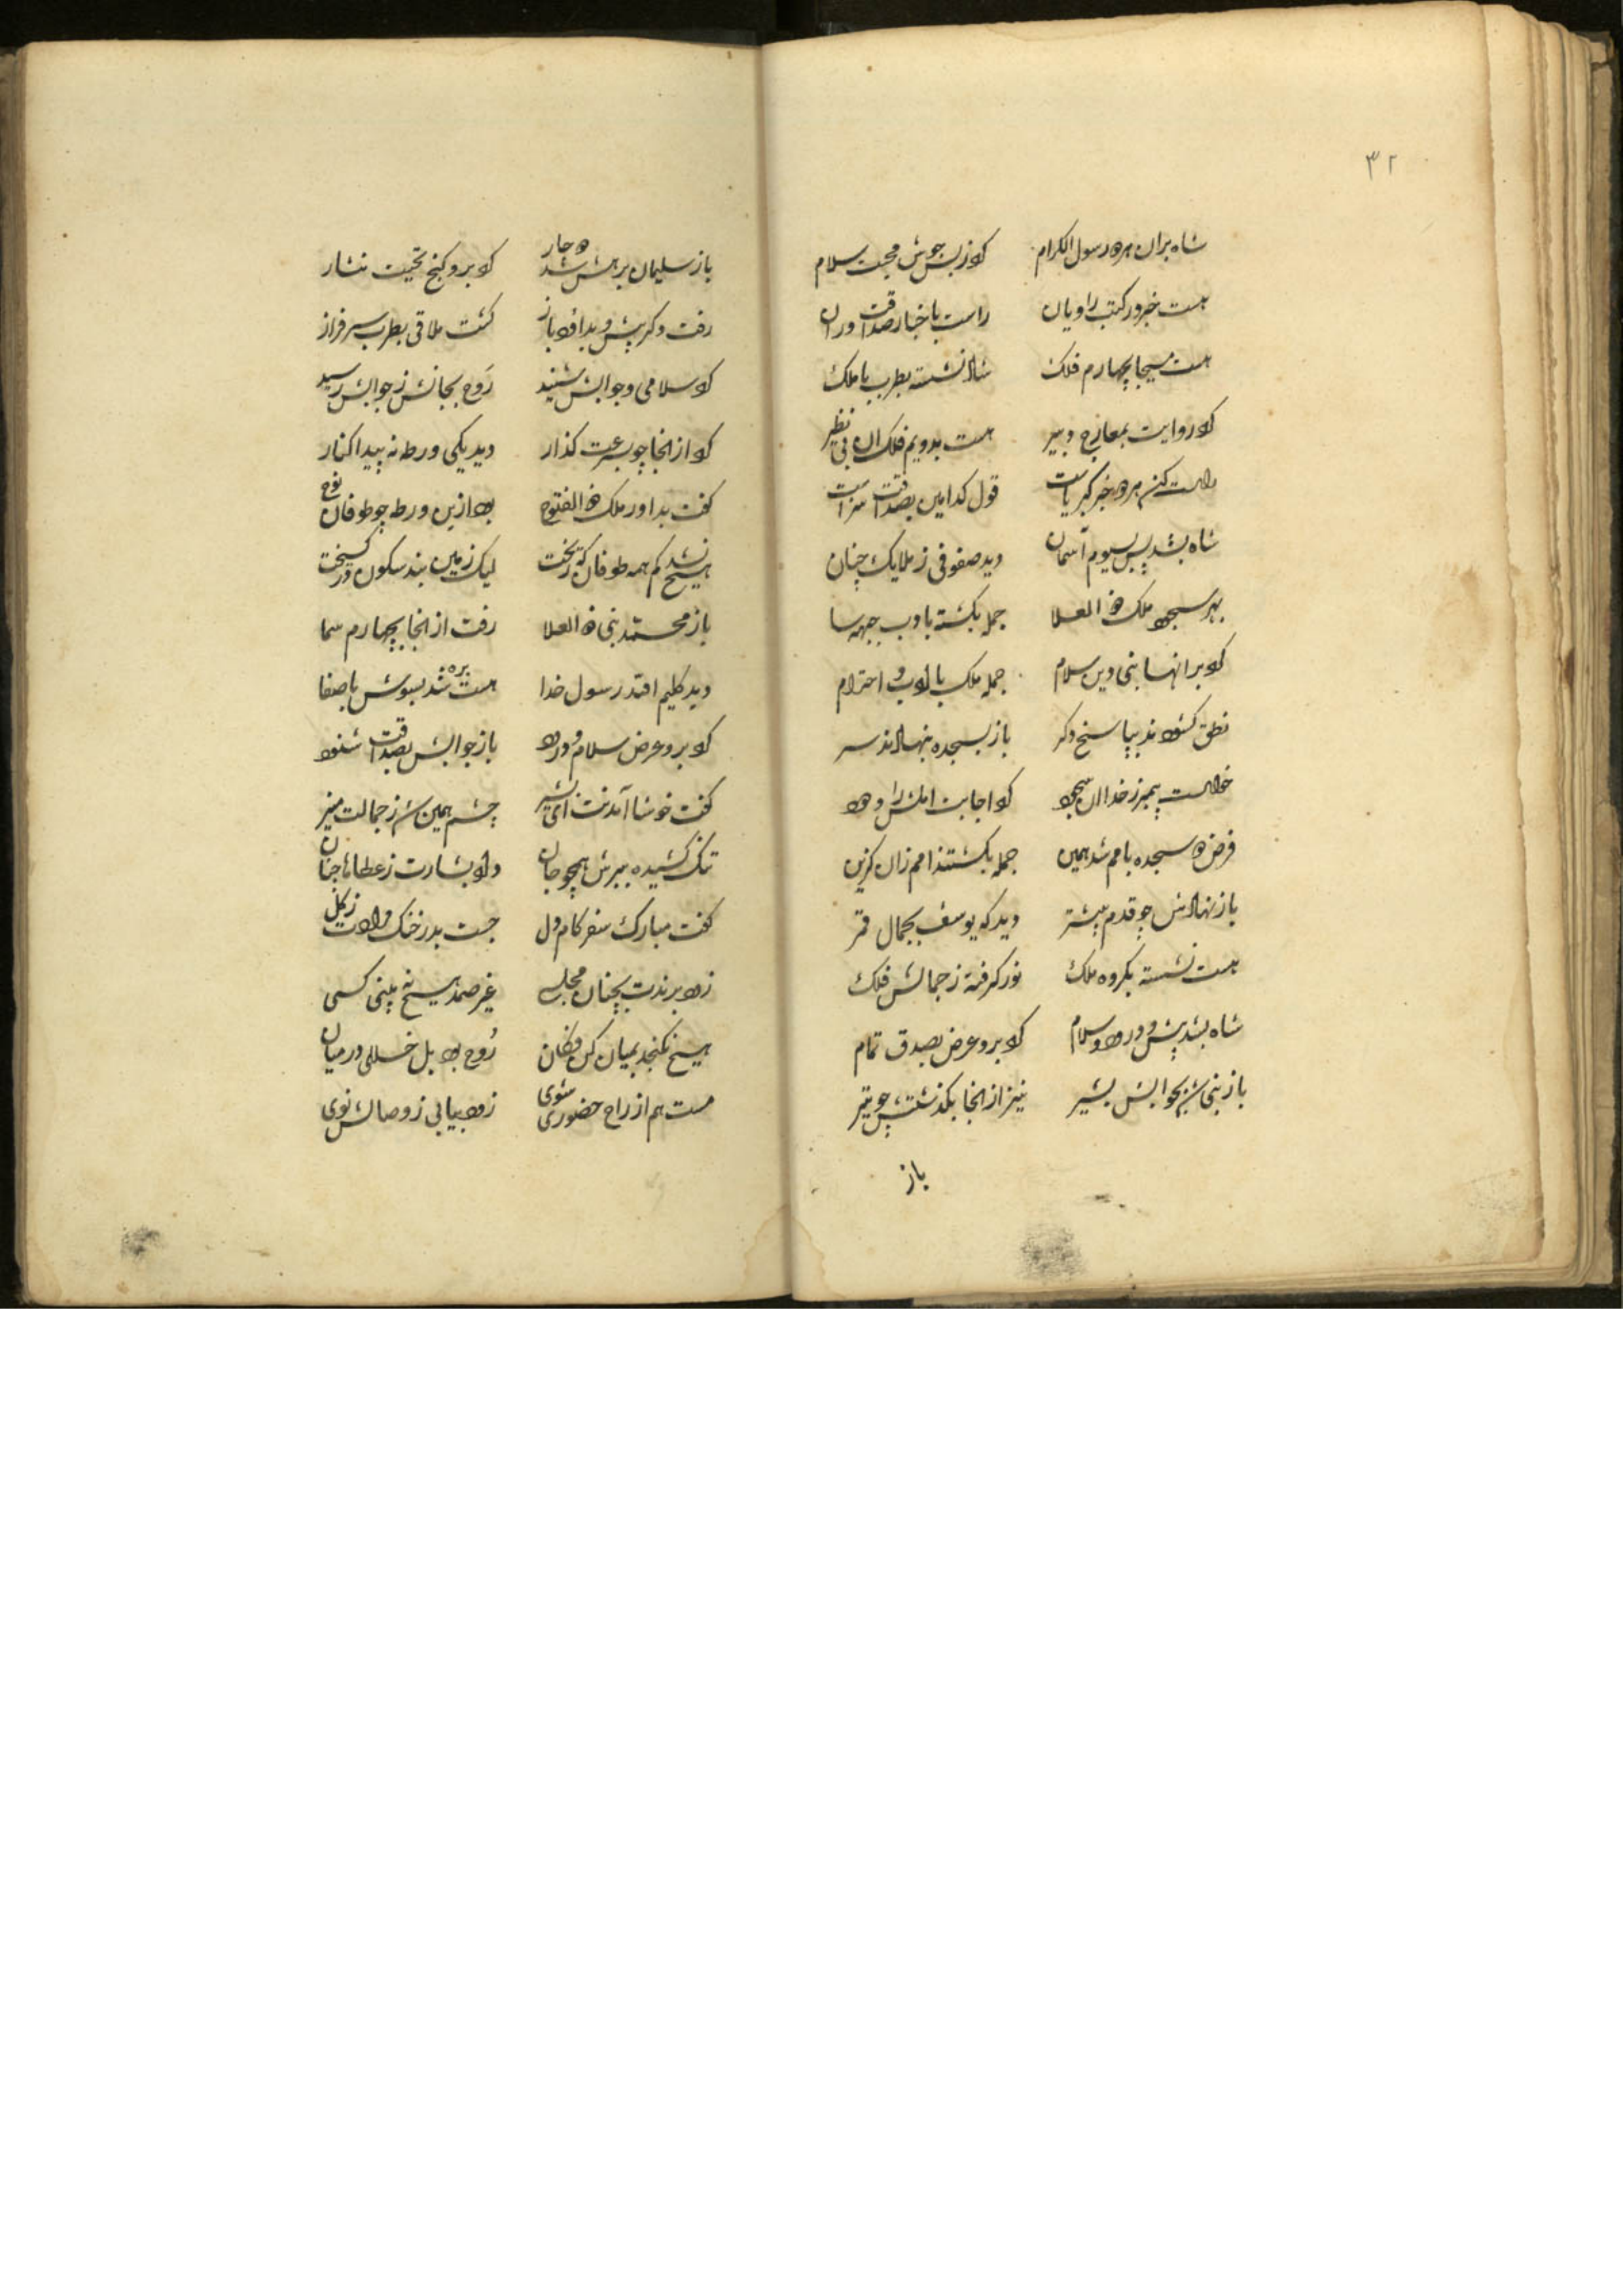 ۳۲
شاه بران هر دو رسول الکرام کرد ز بس جوش محبت سلام
هست خبر در کتب راویان راست باخبار صداقت وران
هست مسیحا بچهارم فلک شاد نشسته بطرب با ملک
کرد روایت بمعارج دبیر هست بدویم فلک آن بی نظیر
راست کن هر دو خبر کبریاست قول کدامین بصداقت سزاست
شاه بشد پس بسیوم آسمان دید صفوفی ز ملایک چنان
بهر سجود ملک ذو العلا جمله بگشته بادب جبهه سا
کرد بر انها نبی دین سلام جمله ملک با ادب و احترام
نطق کشودند بپاسخ دگر باز بسجده بنهادند سر
خواست پیمبر ز خدا آن سجود کو اجابت
فرض دو سجده بامم شد همین جمله بگشتند امم زان گزین
باز نهادش چو قدم پیشتر دید که یوسف بجمال قمر
هست نشسته بگروه ملک نور گرفته ز جمالش فلک
شاه بشد پیش و درود و سلام کرد برو عرض بصدق تمام
باز نبی شد بجوابش بشیر نیز از انجا بگذشتش چو تیر
باز
باز سلیمان برهش شد دوچار کرد برو گنج تحیت نثار
رفت دگر پیش و بداؤد باز گشت ملاقی بطرب سرفراز
کرد سلامی و جوابش شنید روح بجانش ز جوابش رسید
کرد از انجا چو بسرعت گذار دید یکی ورطه نه پیدا کنار
گفت بداور ملک ذو الفتوح بود ازین ورطه چو طوفان نوح
هیچ نشد کم همه طوفان که ریخت لیک زمین بند سکون در گسیخت
باز محمد نبی ذو العلا رفت از انجا بچهارم سما
دید کلیم افتد رسول خدا هست بره شد بسویش با صفا
کرد برو عرض سلام و درود باز جوابش بصداقت شنود
گفت خوشا آمدنت ای بشیر چشم همین شد ز جمالت منیر
تنگ کشیده ببرش همچو جان داد بشارت ز عطاهای جنان
گفت مبارک سفر کام دل جست بدر خنگ مرادت ز گل
زود برندت بچنان مجلسی غیر صمد هیچ نه بینی کسی
هیچ نگنجد بمیان کن فکان روح بود بل خللی درمیان
مست هم از راح حضوری شوی زود بیابی ز وصالش نوی